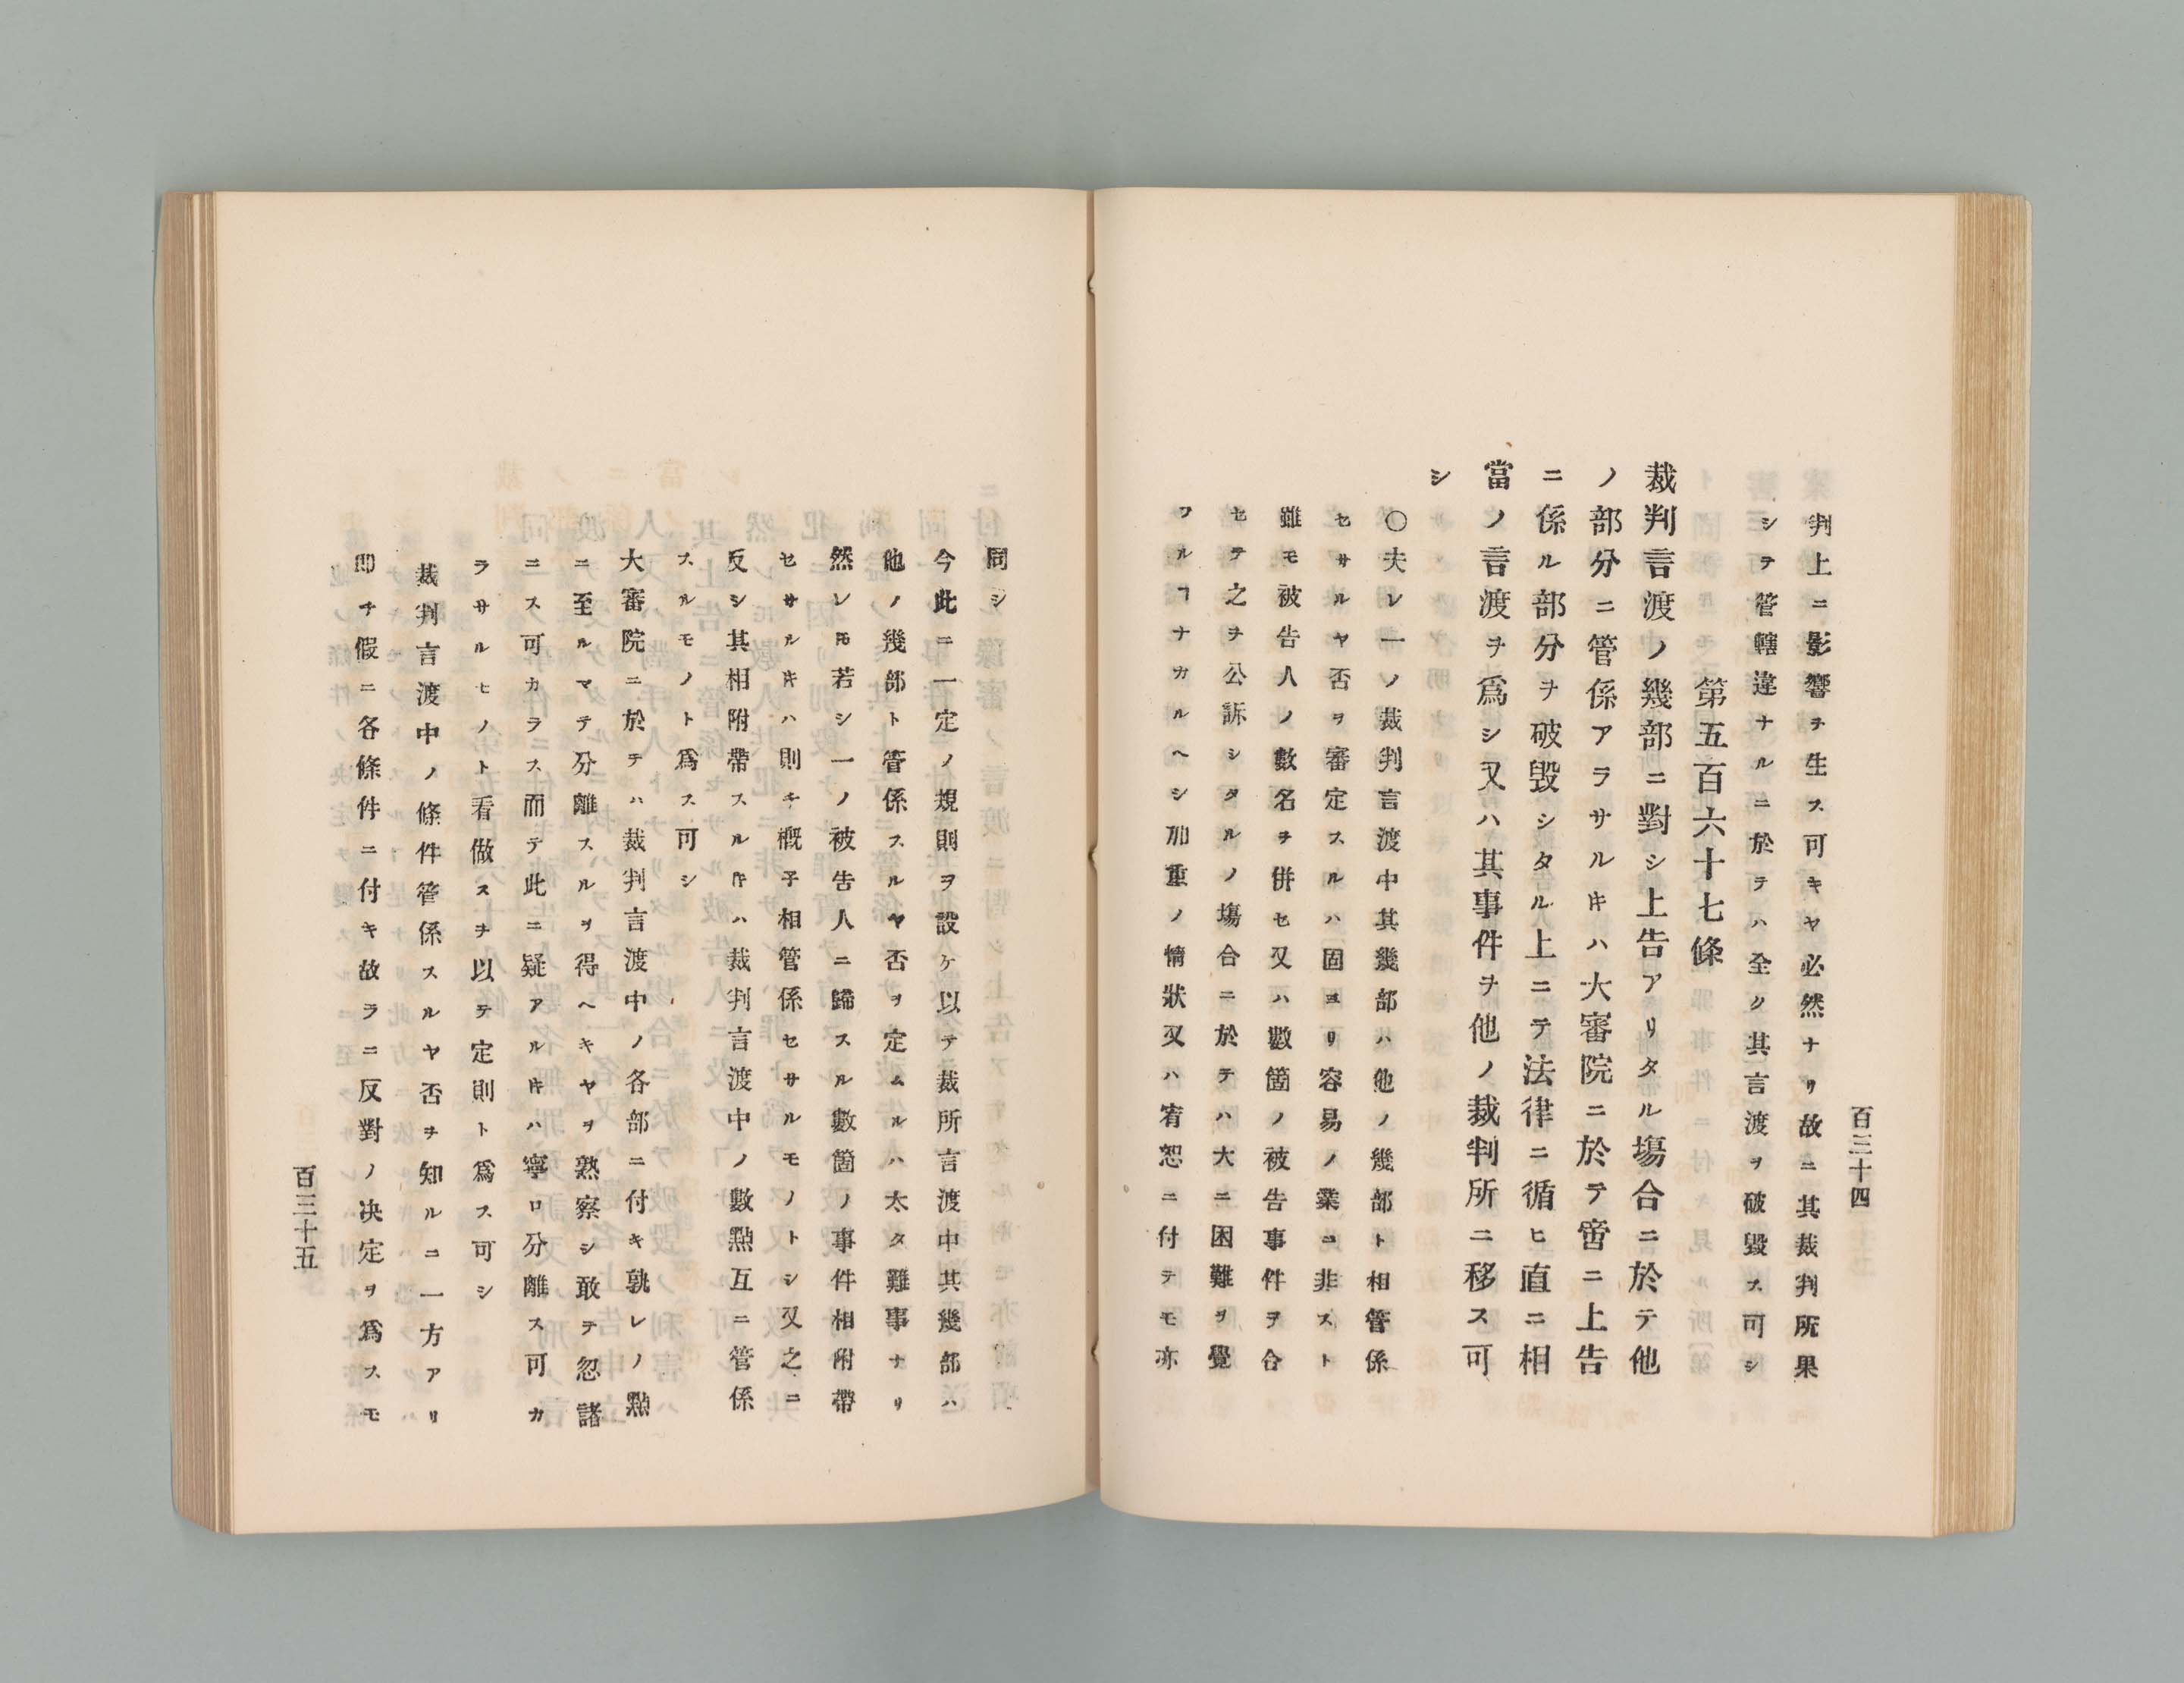 百三十四
判上ニ影響ヲ生ス可キヤ必然ナリ故ニ其裁判所果
シテ管轄違ナルニ於テハ全ク其言渡ヲ破毀ス可シ
第五百六十七條
裁判言渡ノ幾部ニ對シ上告アリタル塲合ニ於テ他
ノ部分ニ管係アラサルㇳキハ大審院ニ於テ啻ニ上告
ニ係ル部分ヲ破毀シタル上ニテ法律ニ循ヒ直ニ相
當ノ言渡ヲ爲シ又ハ其事件ヲ他ノ裁判所ニ移ス可
シ
〇夫レ一ノ裁判言渡中其幾部ハ他ノ幾部ト相管係
セサルヤ否ヲ審定スルハ固ヨリ容易ノ業ニ非スト
雖モ被告人ノ數名ヲ併セ又ハ數箇ノ被告事件ヲ合
セテ之ヲ公訴シタルノ塲合ニ於テハ大ニ困難ヲ覺
フルヿナカルヘシ加重ノ情狀又ハ宥恕ニ付テモ亦
同シ
今此ニ一定ノ規則ヲ設ケ以テ裁所言渡中其幾部ハ
他ノ幾部ト管係スルヤ否ヲ定ムルハ太タ難事ナリ
然レㇳモ若シ一ノ被告人ニ歸スル數箇ノ事件相附帶
セサルㇳキハ則チ概子相管係セサルモノトシ又之ニ
反シ其相附帶スルㇳキハ裁判言渡中ノ數點互ニ管係
スルモノト爲ス可シ
大審院ニ於テハ裁判言渡中ノ各部ニ付キ孰レノ點
ニ至ルマテ分離スルヲ得ヘキヤヲ熟察シ敢テ忽諸
ニス可カラス而テ此ニ疑アルㇳキハ寧ロ分離ス可カ
ラサルモノト看做スヲ以テ定則ト爲ス可シ
裁判言渡中ノ條件管係スルヤ否ヲ知ルニ一方アリ
卽チ假ニ各條件ニ付キ故ラニ反對ノ决定ヲ爲スモ
百三十五